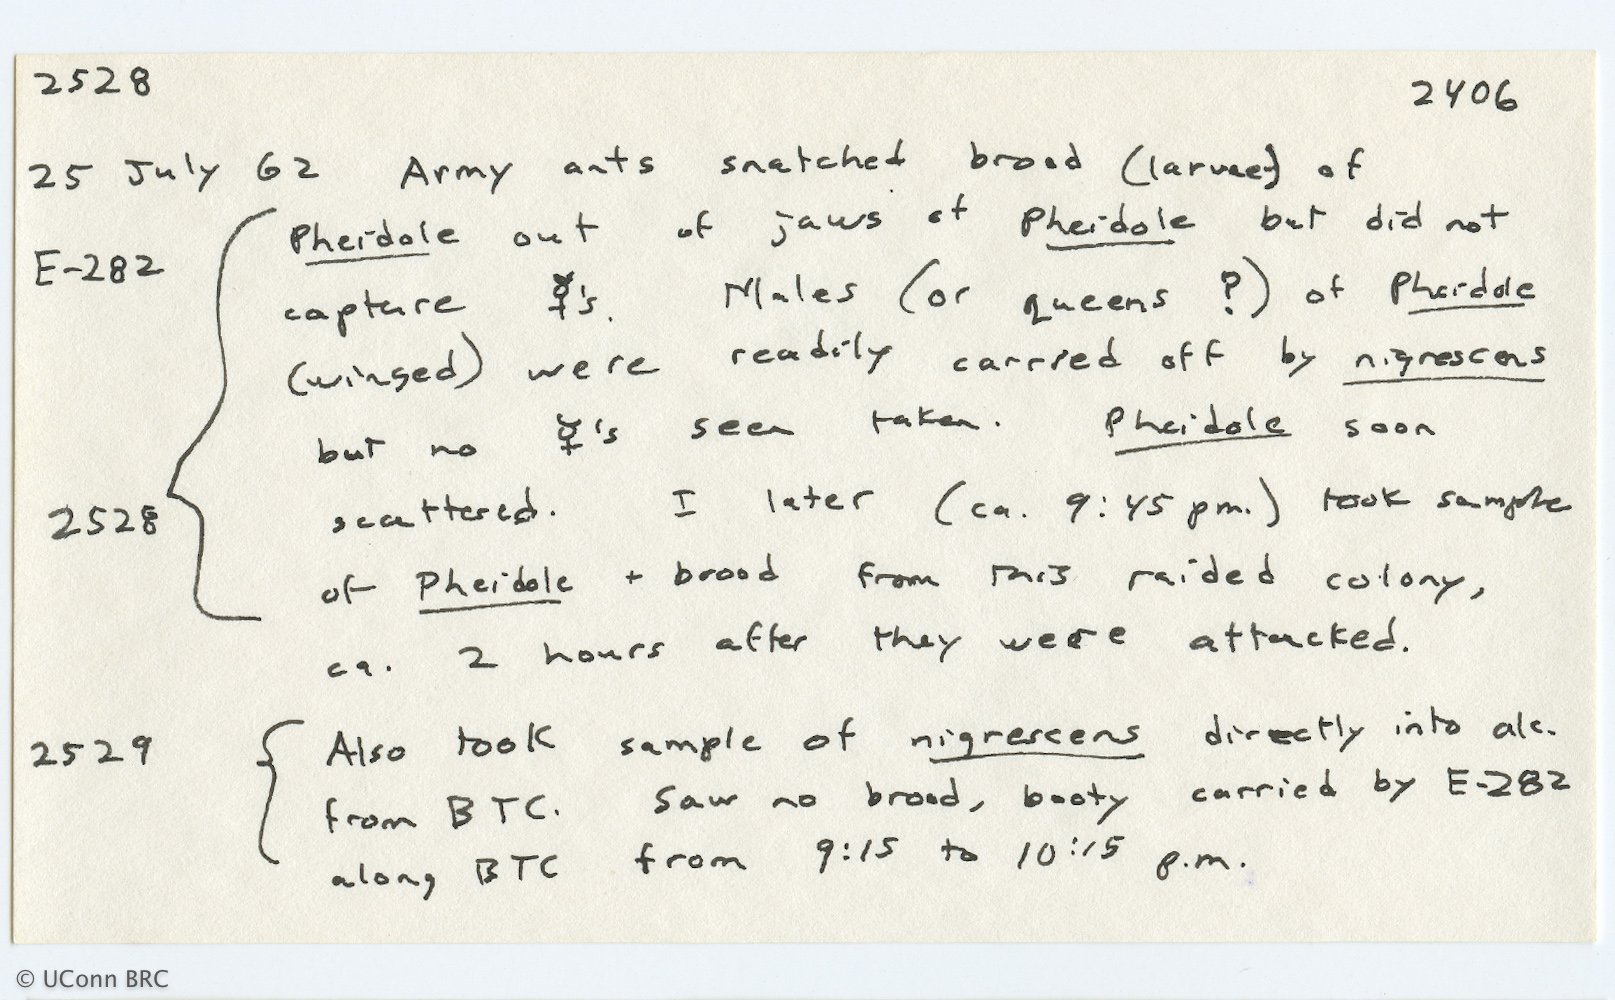 2528 2406
25 July 62 Army ants snatched brood (larvae) of
E-282 Pheidole out of jaws of Pheidole but did not
capture ☿'s. Males (or queens ?) of Pheidole
(winged) were readily carried off by nigrescens
but no ☿'s seen taken. Pheidole soon
2528 scattered. I later (ca. 9:45 pm.) took sample
of Pheidole + brood from this raided colony,
ca. 2 hours after they were attacked.
2529 Also took sample of nigrescens directly into alc.
from BTC. Saw no brood, booty carried by E-282
along BTC from 9:15 to 10:15 p.m.
© UConn BRC